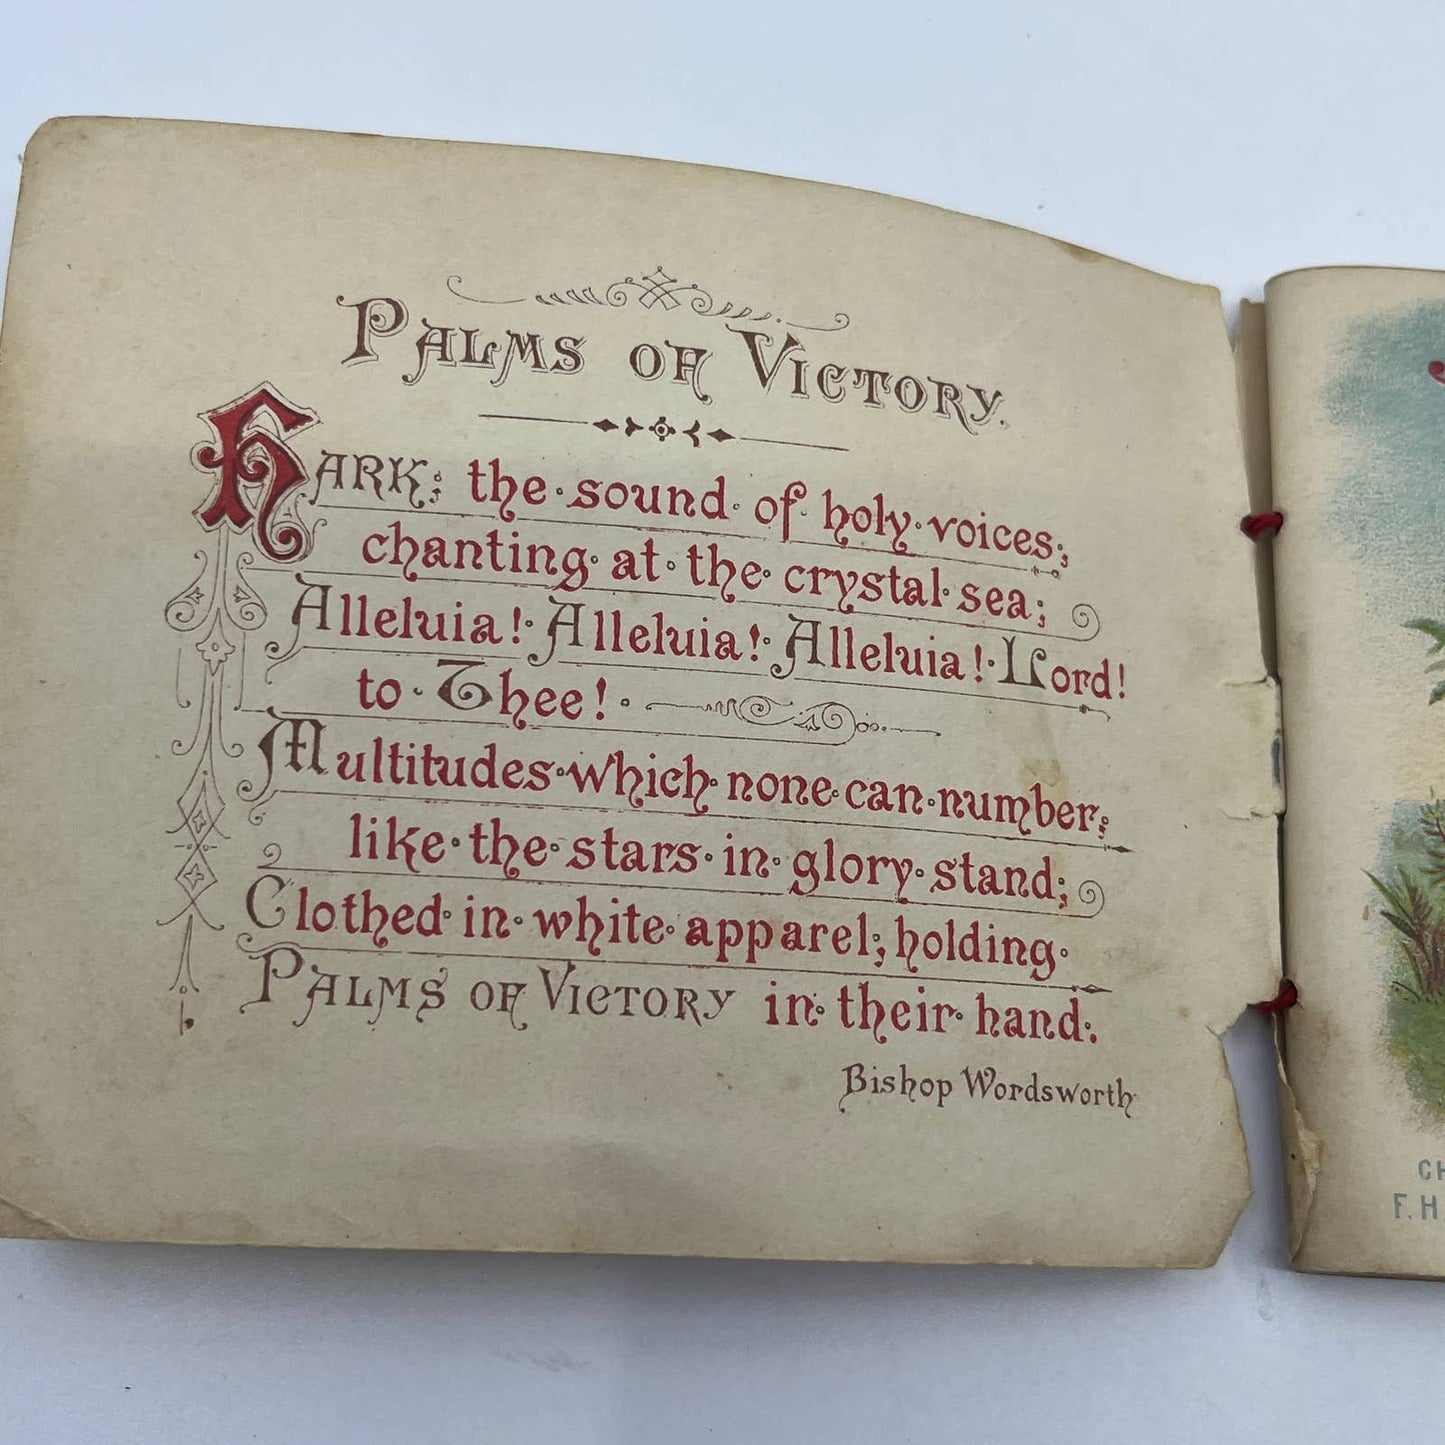 PALMS OF VICTORY.
HARK; the sound of holy voices,
chanting at the crystal sea;
Alleluia! Alleluia! Alleluia! Lord!
to Thee!
Multitudes which none can number,
like the stars in glory stand;
Clothed in white apparel, holding
PALMS OF VICTORY in their hand.
Bishop Wordsworth
F. H